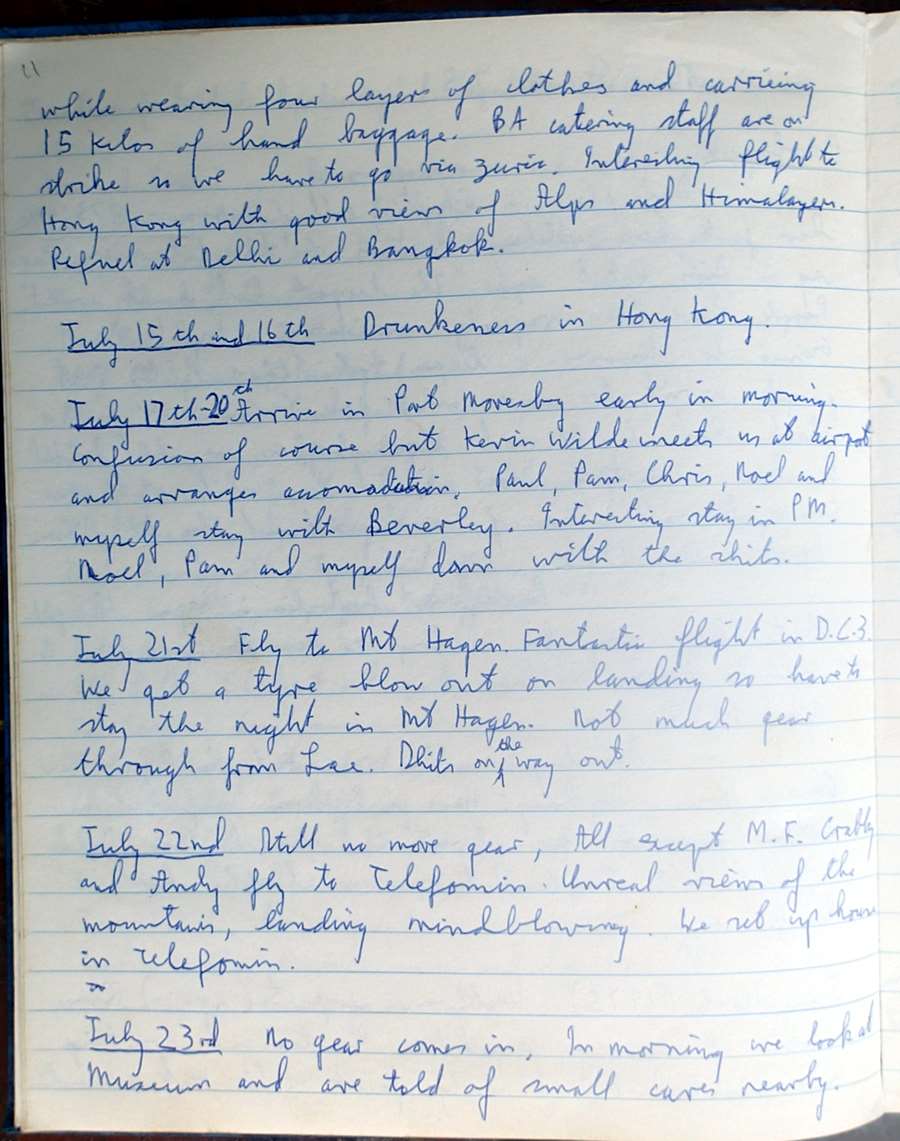 11
while wearing four layers of clothes and carrieing
15 kilos of hand baggage. BA catering staff are on
strike so we have to go via Zuric. Interesting flight to
Hong Kong with good views of Alps and Himalayers.
Refuel at Delhi and Bangkok.
July 15th and 16th Drunkeness in Hong Kong.
July 17th-20th Arrive in Port Moresby early in morning.
Confusion of course but Kevin Wilde meets us at airport
and arranges accomodation. Paul, Pam, Chris, Noel and
myself stay with Beverley. Interesting stay in P.M.
Noel, Pam and myself down with the shits.
July 21st Fly to Mt Hagen. Fantastic flight in D.C.3.
We get a tyre blow out on landing so have to
stay the night in Mt Hagen. Not much gear
through from Lae. Shits on the way out.
July 22nd Still no more gear, All except M.F. Crabby
and Andy fly to Telefomin. Unreal views of the
mountains, landing mindblowing. We set up house
in Telefomin.
July 23rd No gear comes in, In morning we look at
Museum and are told of small caves nearby.